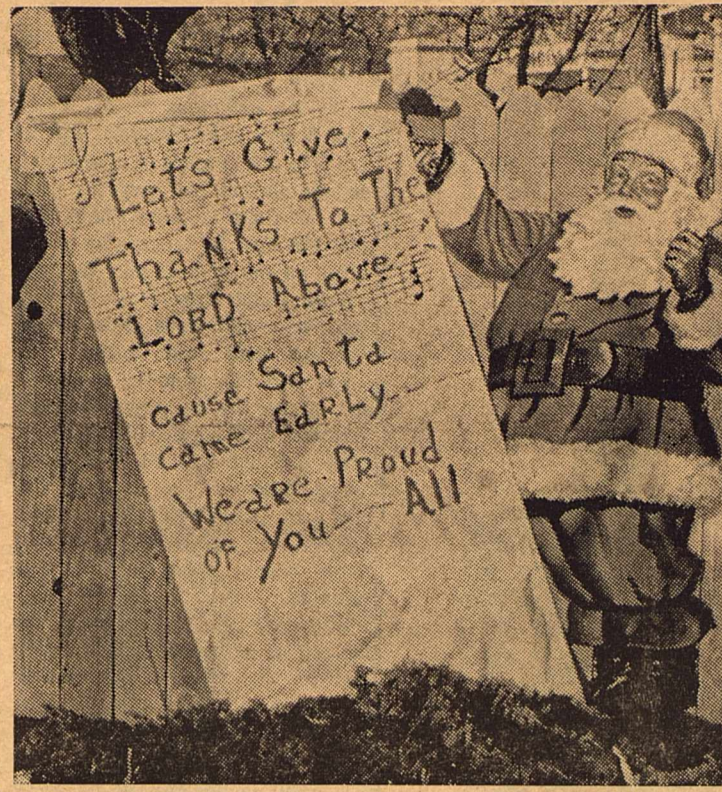 Lets Give
Thanks To The
LORD Above
cause Santa
came EARLY
We are Proud
of You All